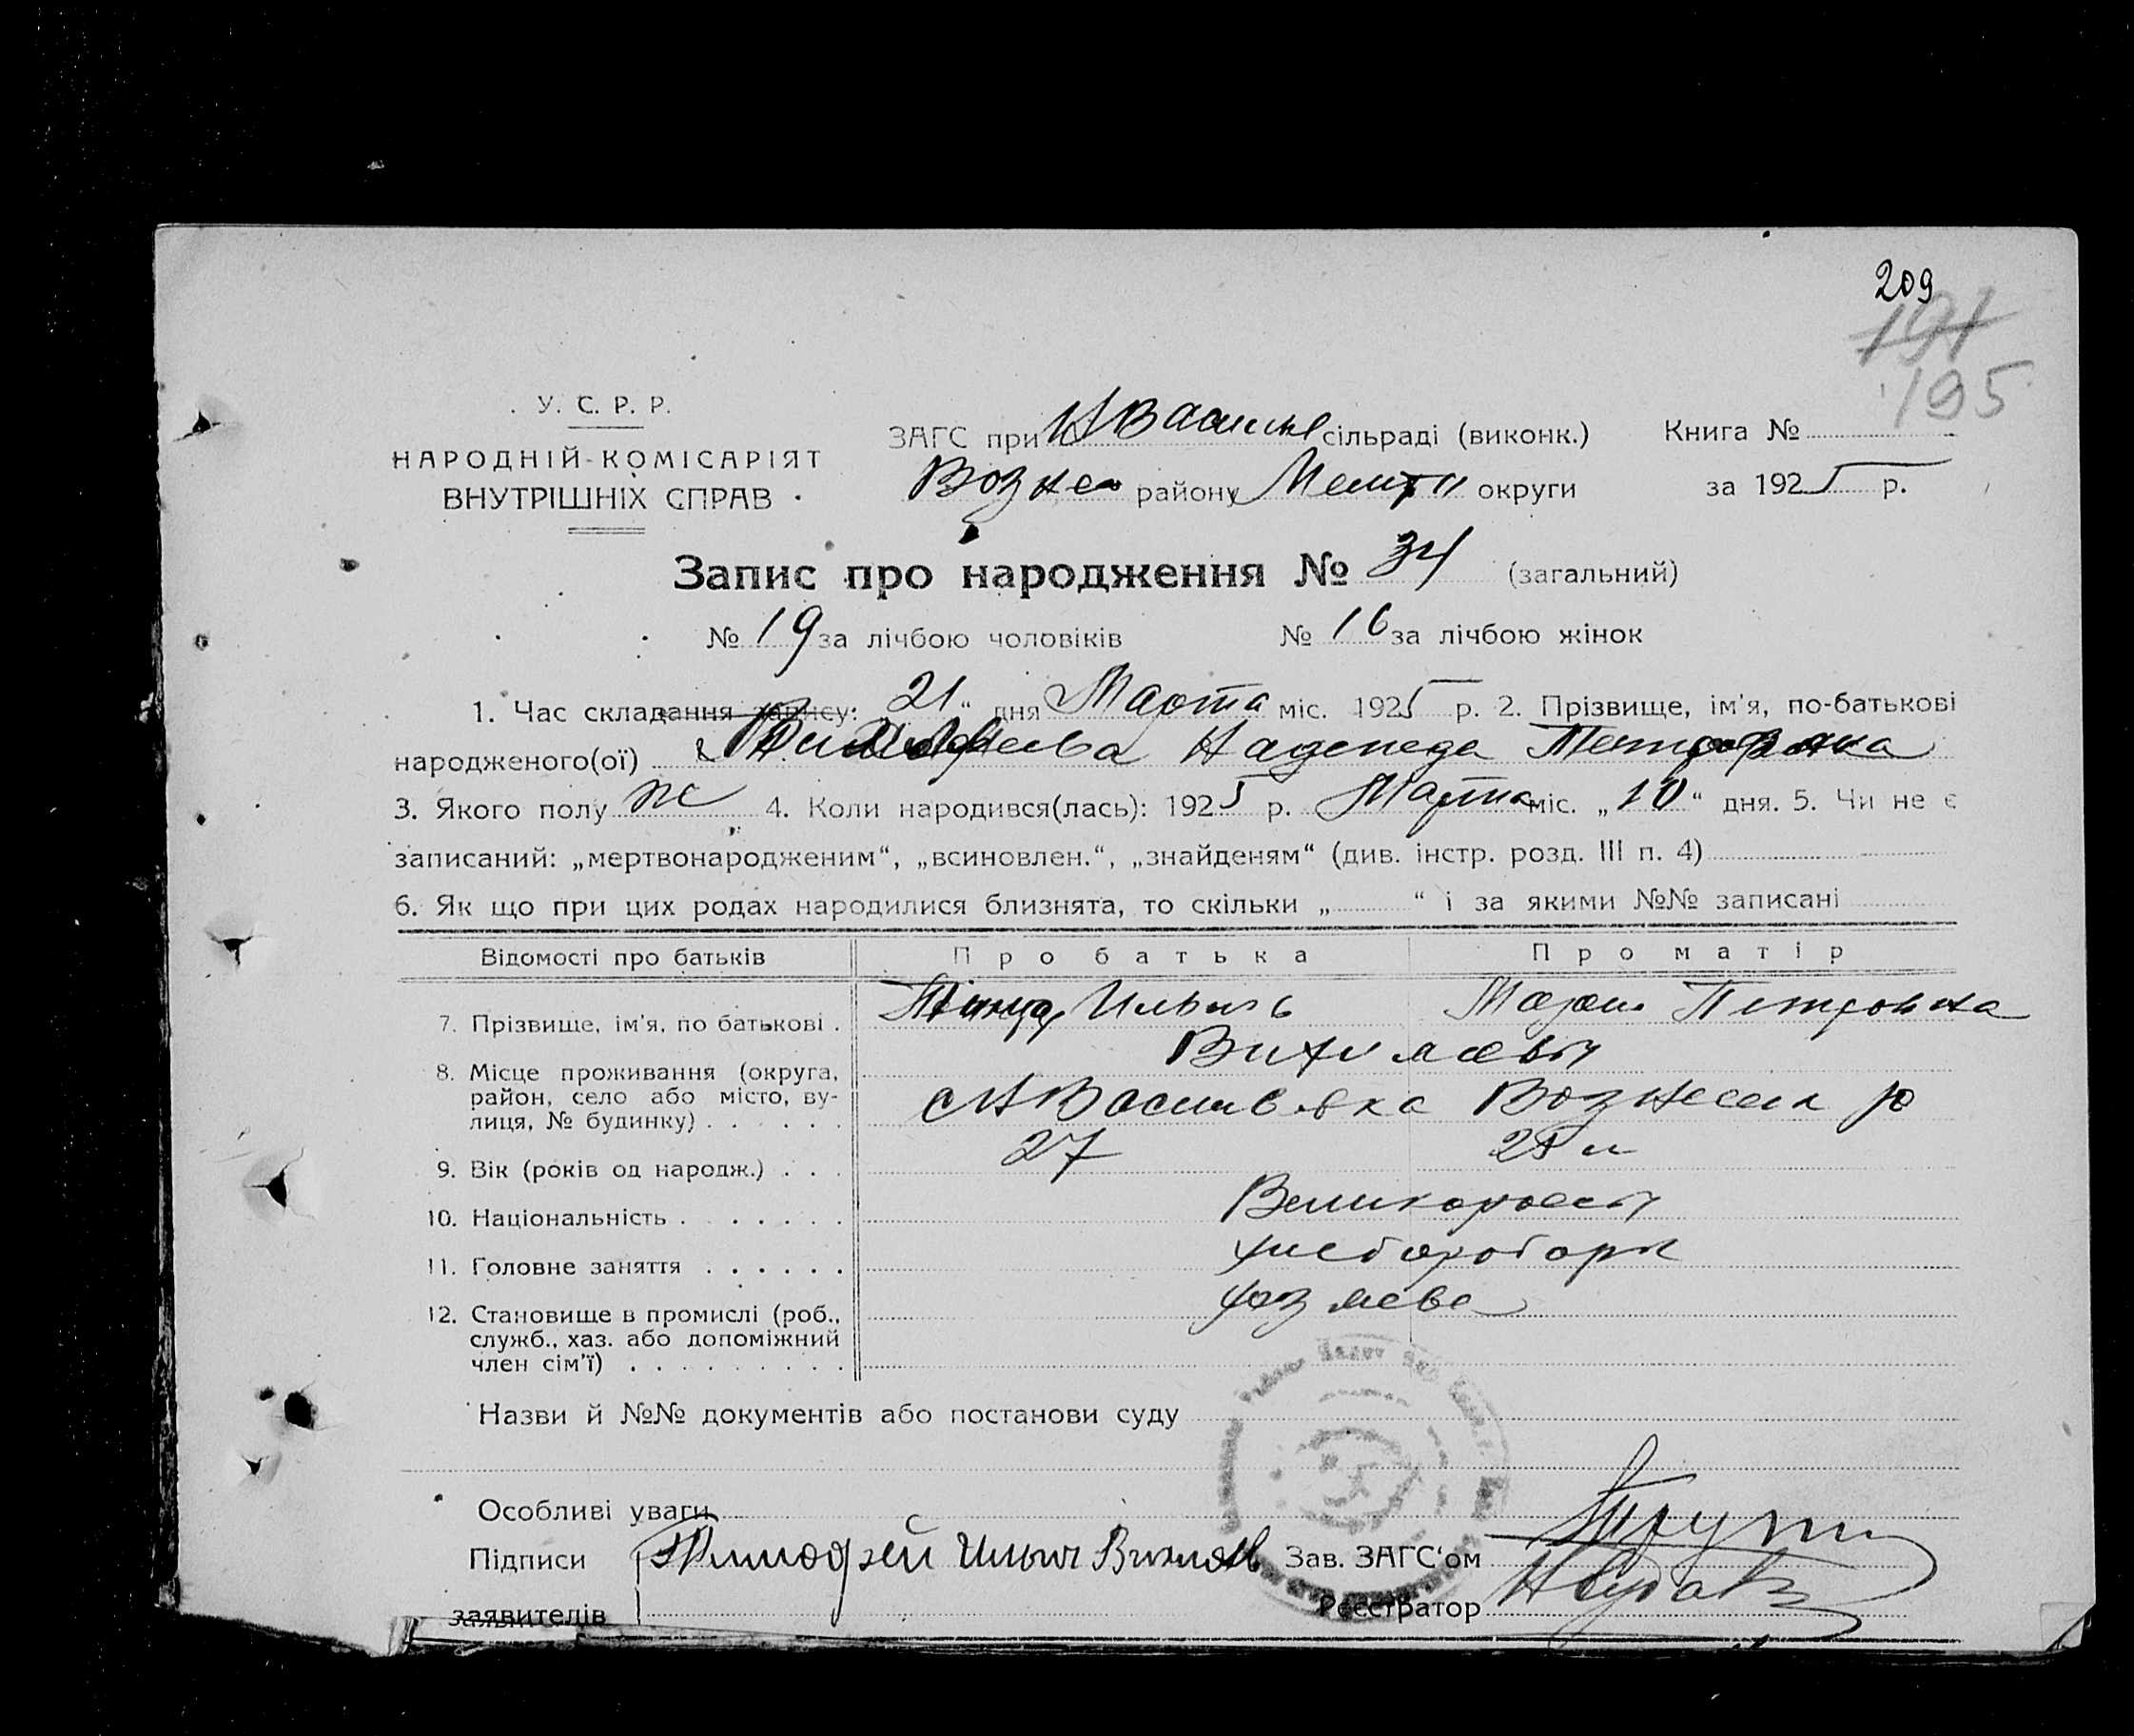 209
191
195
У. С. Р. Р.
НАРОДНІЙ КОМІСАРІЯТ
ВНУТРІШНІХ СПРАВ
ЗАГС при НВасил сільраді (виконк.) Книга №
Вознес району Мелит округи за 1925 р.
Запис про народження № 34 (загальний)
№ 19 за лічбою чоловіків № 16 за лічбою жінок
1. Час складання запису: „21“ дня Марта міс. 1925 р. 2. Прізвище, ім'я, по-батькові
народженого(ої) Надежда
3. Якого полу ж 4. Коли народився(лась): 1925 р. Марта міс. „10“ дня. 5. Чи не є
записаний: „мертвонародженим“, „всиновлен.“, „знайденям“ (див. інстр. розд. III п. 4)
6. Як що при цих родах народилися близнята, то скільки „ “ і за якими №№ записані
Відомості про батьків Про батька Про матір
7. Прізвище, ім'я, по батькові . Ильич Мария Петровна
8. Місце проживання (округа,
район, село або місто, ву-
лиця, № будинку) . . . . . . с НВасильевка Вознесен р
9. Вік (років од народж.) . . . 27 25 л
10. Національність . . . . . . . Великороссы
11. Головне заняття . . . . . . хлеборобы
12. Становище в промислі (роб.,
служб., хаз. або допоміжний
член сім'ї) . . . . . . . . . хозяева
Назви й №№ документів або постанови суду
Особливі уваги
Підписи Тимофей Ильич Зав. ЗАГС'ом
заявителів Реєстратор